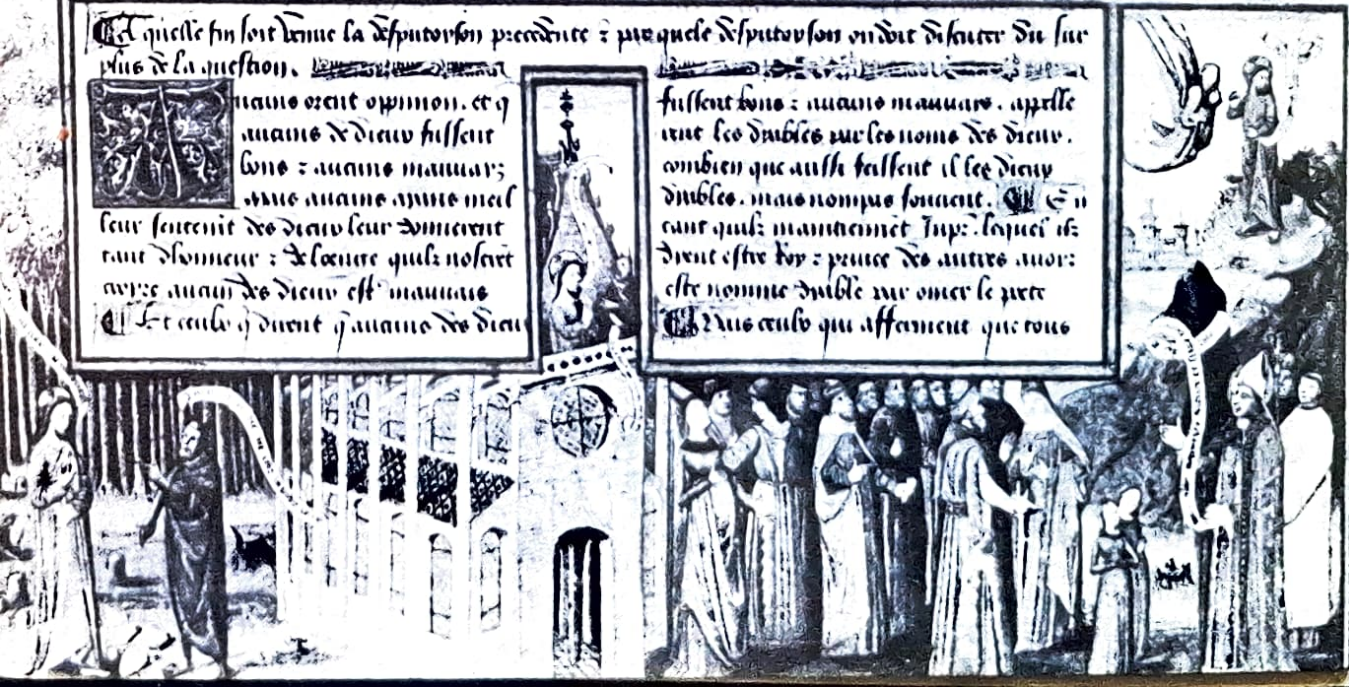 A quelle fin soit venue la desputoyson precedente ⁊ par quele desputoyson on doit discuter du sur
plus de la question.
Aucuns orent oppinion. et q
aucuns de dieux fussent
bons ⁊ aucuns mauuaiz
mais aucuns ayans meil
leur sentence des dieux leur donnerent
tant dhonneur ⁊ de loenge quilz noserent
croire aucun des dieux estre mauuais
Et ceulx q dirent q aucuns des dieux
fussent bons ⁊ aucuns mauuais. appelle
rent les dyables par les noms des dieux.
combien que aussi feissent il les dieux
dyables. mais non pas souuent. En
tant quilz maintiennent Jupiter. lequel ilz
dient estre Roy ⁊ prince des autres auoir
este nomme dyable par omer le poete
Mais ceulx qui afferment que tous